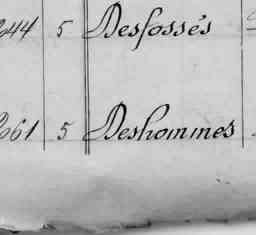 644 5 Desfossés
661 5 Deshommes